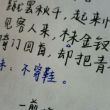 蹴罢秋千,起来慵
见客入来,袜金钗
倚门回首,却把青
:不穿鞋。